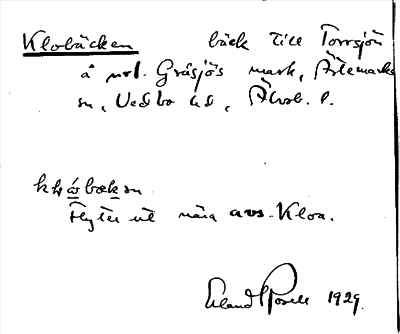 Klobäcken bäck till Torrsjön
å nrl. Gråsjös mark, Ärtemarks
sn, Vedbo hd, Älvsb. l.
Flyter ut nära avs. Kloa.
Erland Rosell 1929.